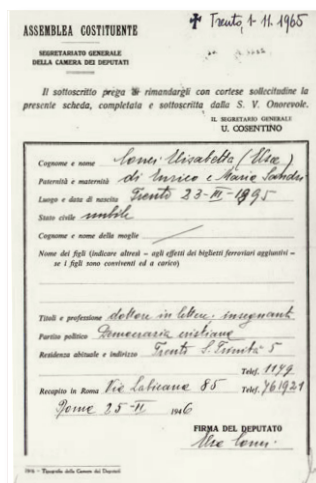 ✝ Trento, 1-11.1965
ASSEMBLEA COSTITUENTE
SEGRETARIATO GENERALE
DELLA CAMERA DEI DEPUTATI
Il sottoscritto prega di rimandargli con cortese sollecitudine la
presente scheda, completata e sottoscritta dalla S. V. Onorevole.
IL SEGRETARIO GENERALE
U. COSENTINO
Cognome e nome Conci Elisabetta (Elsa)
Paternità e maternità di Enrico e Maria Sandri
Luogo e data di nascita Trento 23-III-1895
Stato civile nubile
Cognome e nome della moglie
Nome dei figli (indicare altresì - agli effetti dei biglietti ferroviari aggiuntivi -
se i figli sono conviventi ed a carico)
Titoli e professione dottore in lettere, insegnante
Partito politico Democrazia cristiana
Residenza abituale e indirizzo Trento S. Trinità 5
Telef. 1179
Recapito in Roma Via Labicana 85 Telef. 761921
Roma 25-II 1946
FIRMA DEL DEPUTATO
Elsa Conci
Tipografia della Camera dei Deputati